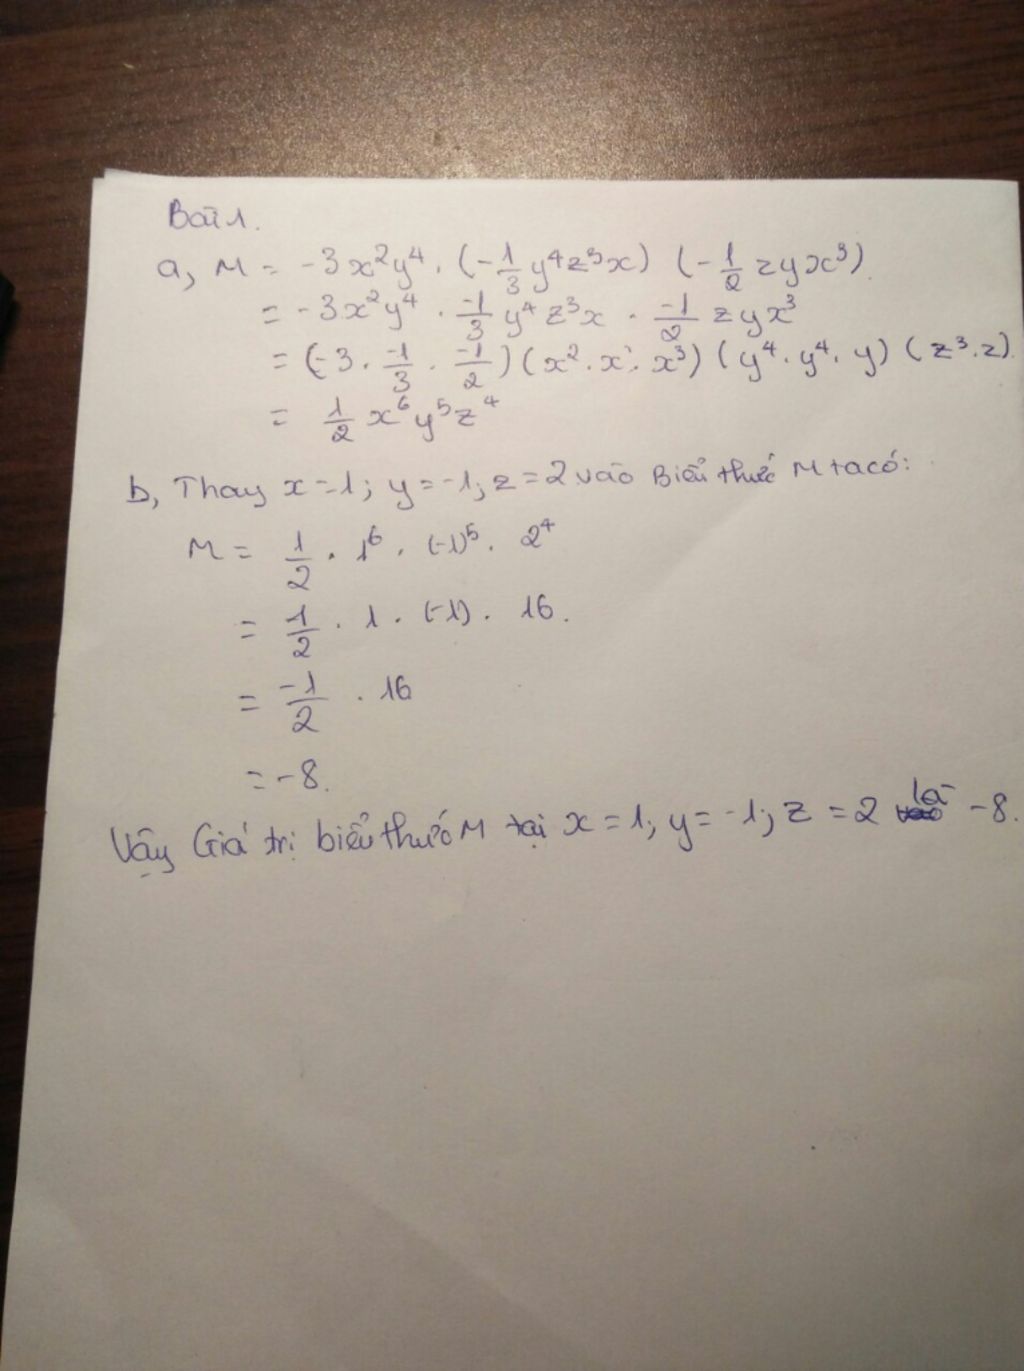 Bài 1.
a, M = -3x²y⁴ . (-1/3 y⁴z³x) (-1/2 zyx³).
= -3x²y⁴ . -1/3 y⁴z³x . -1/2 zyx³
= (-3 . -1/3 . -1/2) (x² . x . x³) (y⁴ . y⁴ . y) (z³ . z).
= 1/2 x⁶y⁵z⁴
b, Thay x = 1; y = -1; z = 2 vào Biểu thức M ta có:
M = 1/2 . 1⁶ . (-1)⁵ . 2⁴
= 1/2 . 1 . (-1) . 16.
= -1/2 . 16
= -8.
Vậy Giá trị biểu thức M tại x = 1; y = -1; z = 2 là -8.